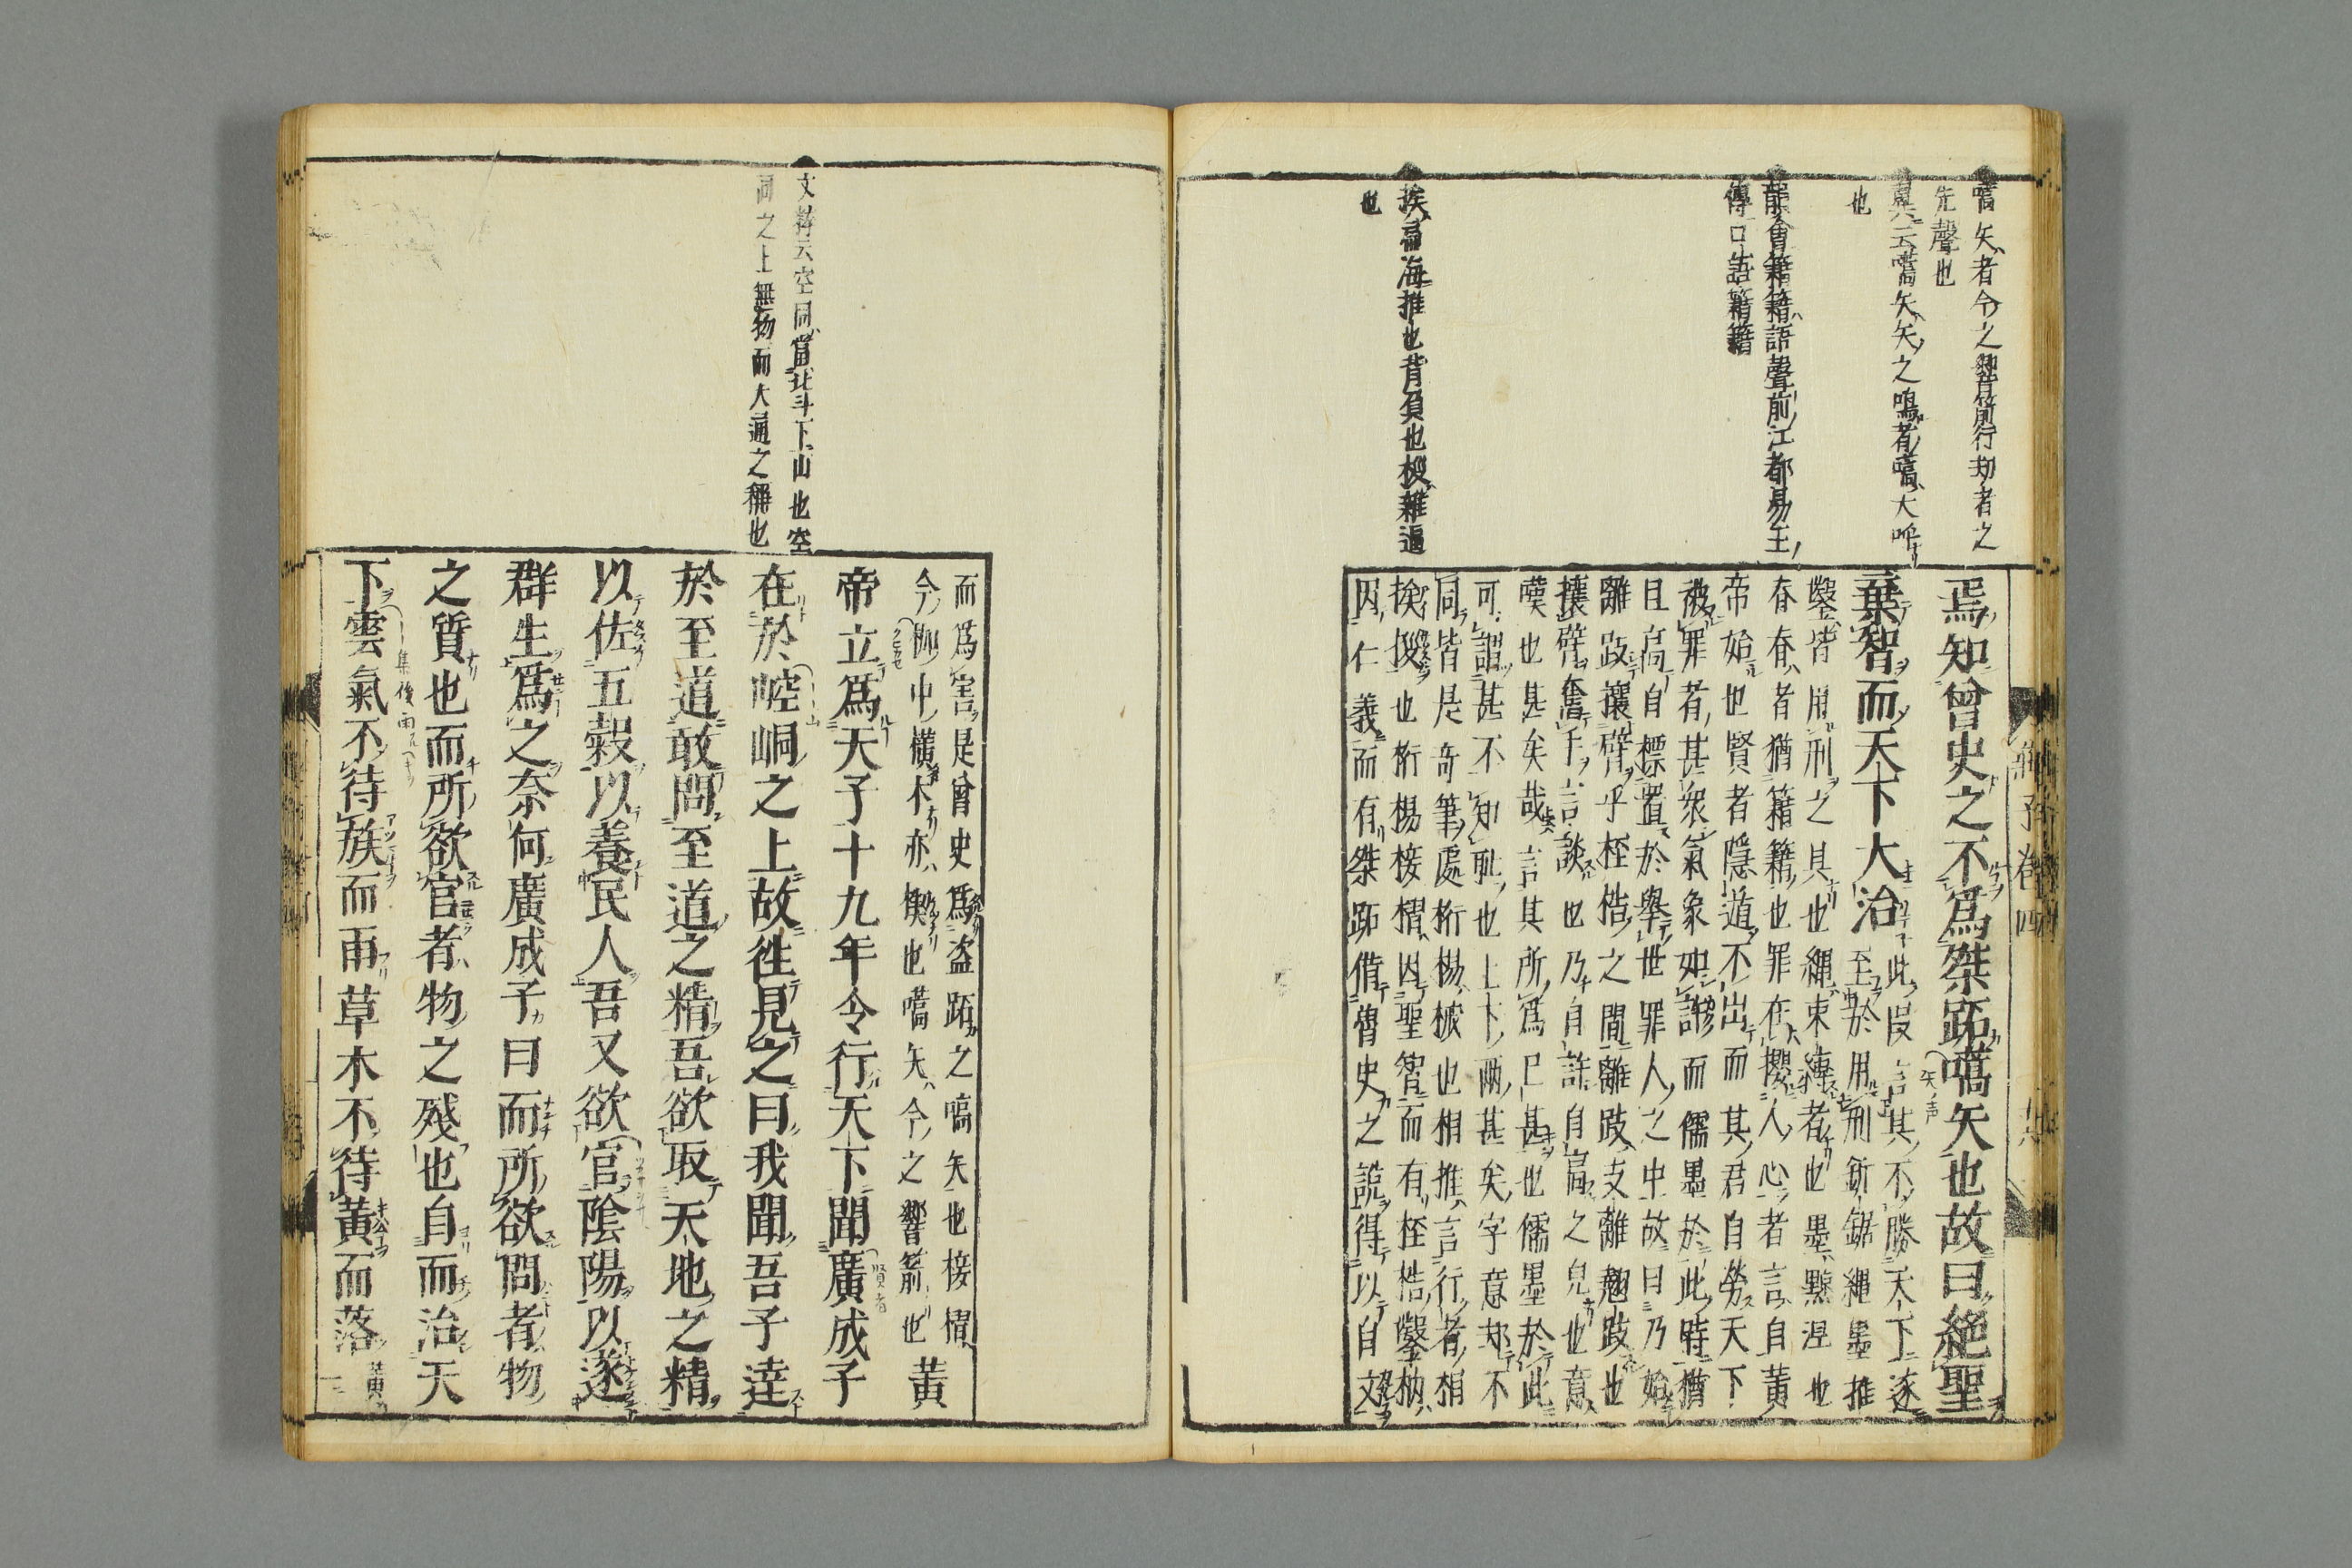 嚆矢者今之響箭行刼者之
先聲也
翼云嚆矢矢之鳴者嚆大呼
也
韻會籍籍語聲前江都易王
傳口語籍籍
挨
也海推也背負也拶雜逼
焉知曾史之不爲桀跖嚆矢也故曰絕聖
棄智而天下大治此段言其不勝天下遂
至於用刑釿鋸繩墨推
鑿皆用刑之具也繩束縛者也墨黥涅也
舂舂者猶籍籍也罪在攖人心者言自黃
帝始也賢者隱遁不出而其君自勞天下
被罪者甚衆氣象如而儒墨於此時猶
且高自標置於舉世罪人之中故曰乃始
離跂攘臂乎桎梏之間離跂支離翹跂也
攘臂奮手言談也乃自許自高之皃也意
嘆也甚矣哉言其所爲已甚也儒墨於此
可謂甚不知耻也上下兩甚矣字意却不
同皆是奇筆處桁楊械也相推言行者相
挨拶也桁楊接槢因聖智而有桎梏鑿枘
因仁義而有桀跖借曾史之說得以自文
莊子卷四
而爲害是曾史爲盜跖之嚆矢也接槢
今枷中橫木亦楔也嚆矢今之響箭也黃
帝立爲天子十九年令行天下聞廣成子
在於崆峒之上故徃見之曰我聞吾子達
於至道敢問至道之精吾欲取天地之精
以佐五穀以養民人吾又欲官陰陽以遂
群生爲之奈何廣成子曰而所欲問者物
之質也而所欲官者物之殘也自而治天
下雲氣不待族而雨草木不待黃而落黃
文粹云空同當北斗下山也空
同之上無物而大通之稱也